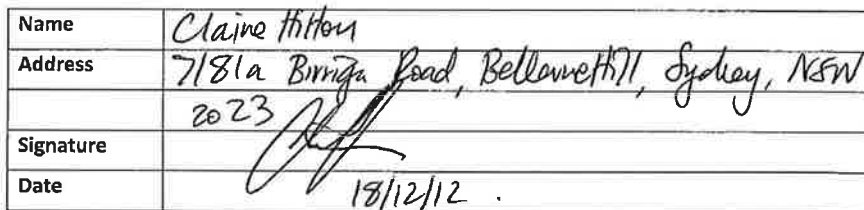 Name Claine Hilton
Address 7/81a Birriga Road, Bellevue Hill, Sydney, NSW
2023
Signature
Date 18/12/12.